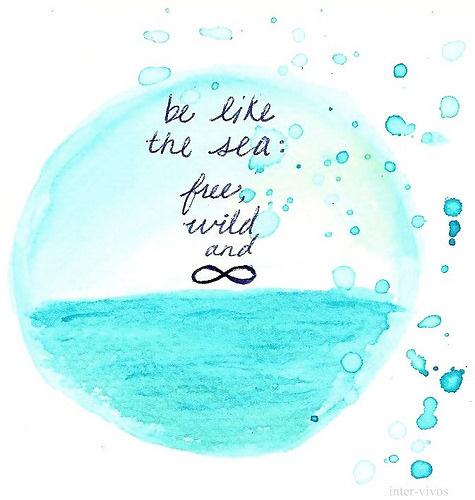 be like
the sea:
free,
wild,
and
∞
inter-vivos